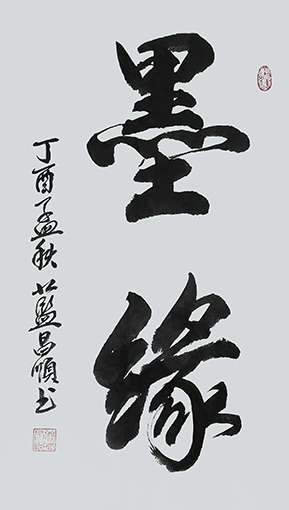 墨缘
丁酉孟秋 蓝昌顺书